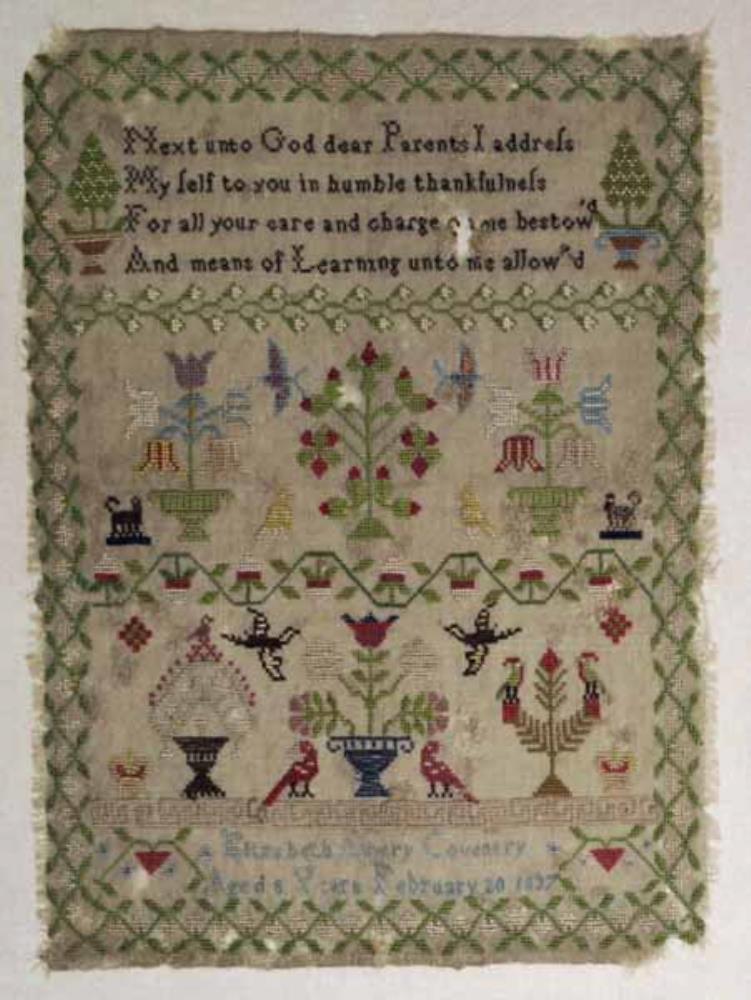 Next unto God dear Parents I addreſs
My ſelf to you in humble thankfulneſs
For all your care and charge on me bestow'd
And means of Learning unto me allow'd
Elizabeth Coventry
Aged 8 Years February 20 1837